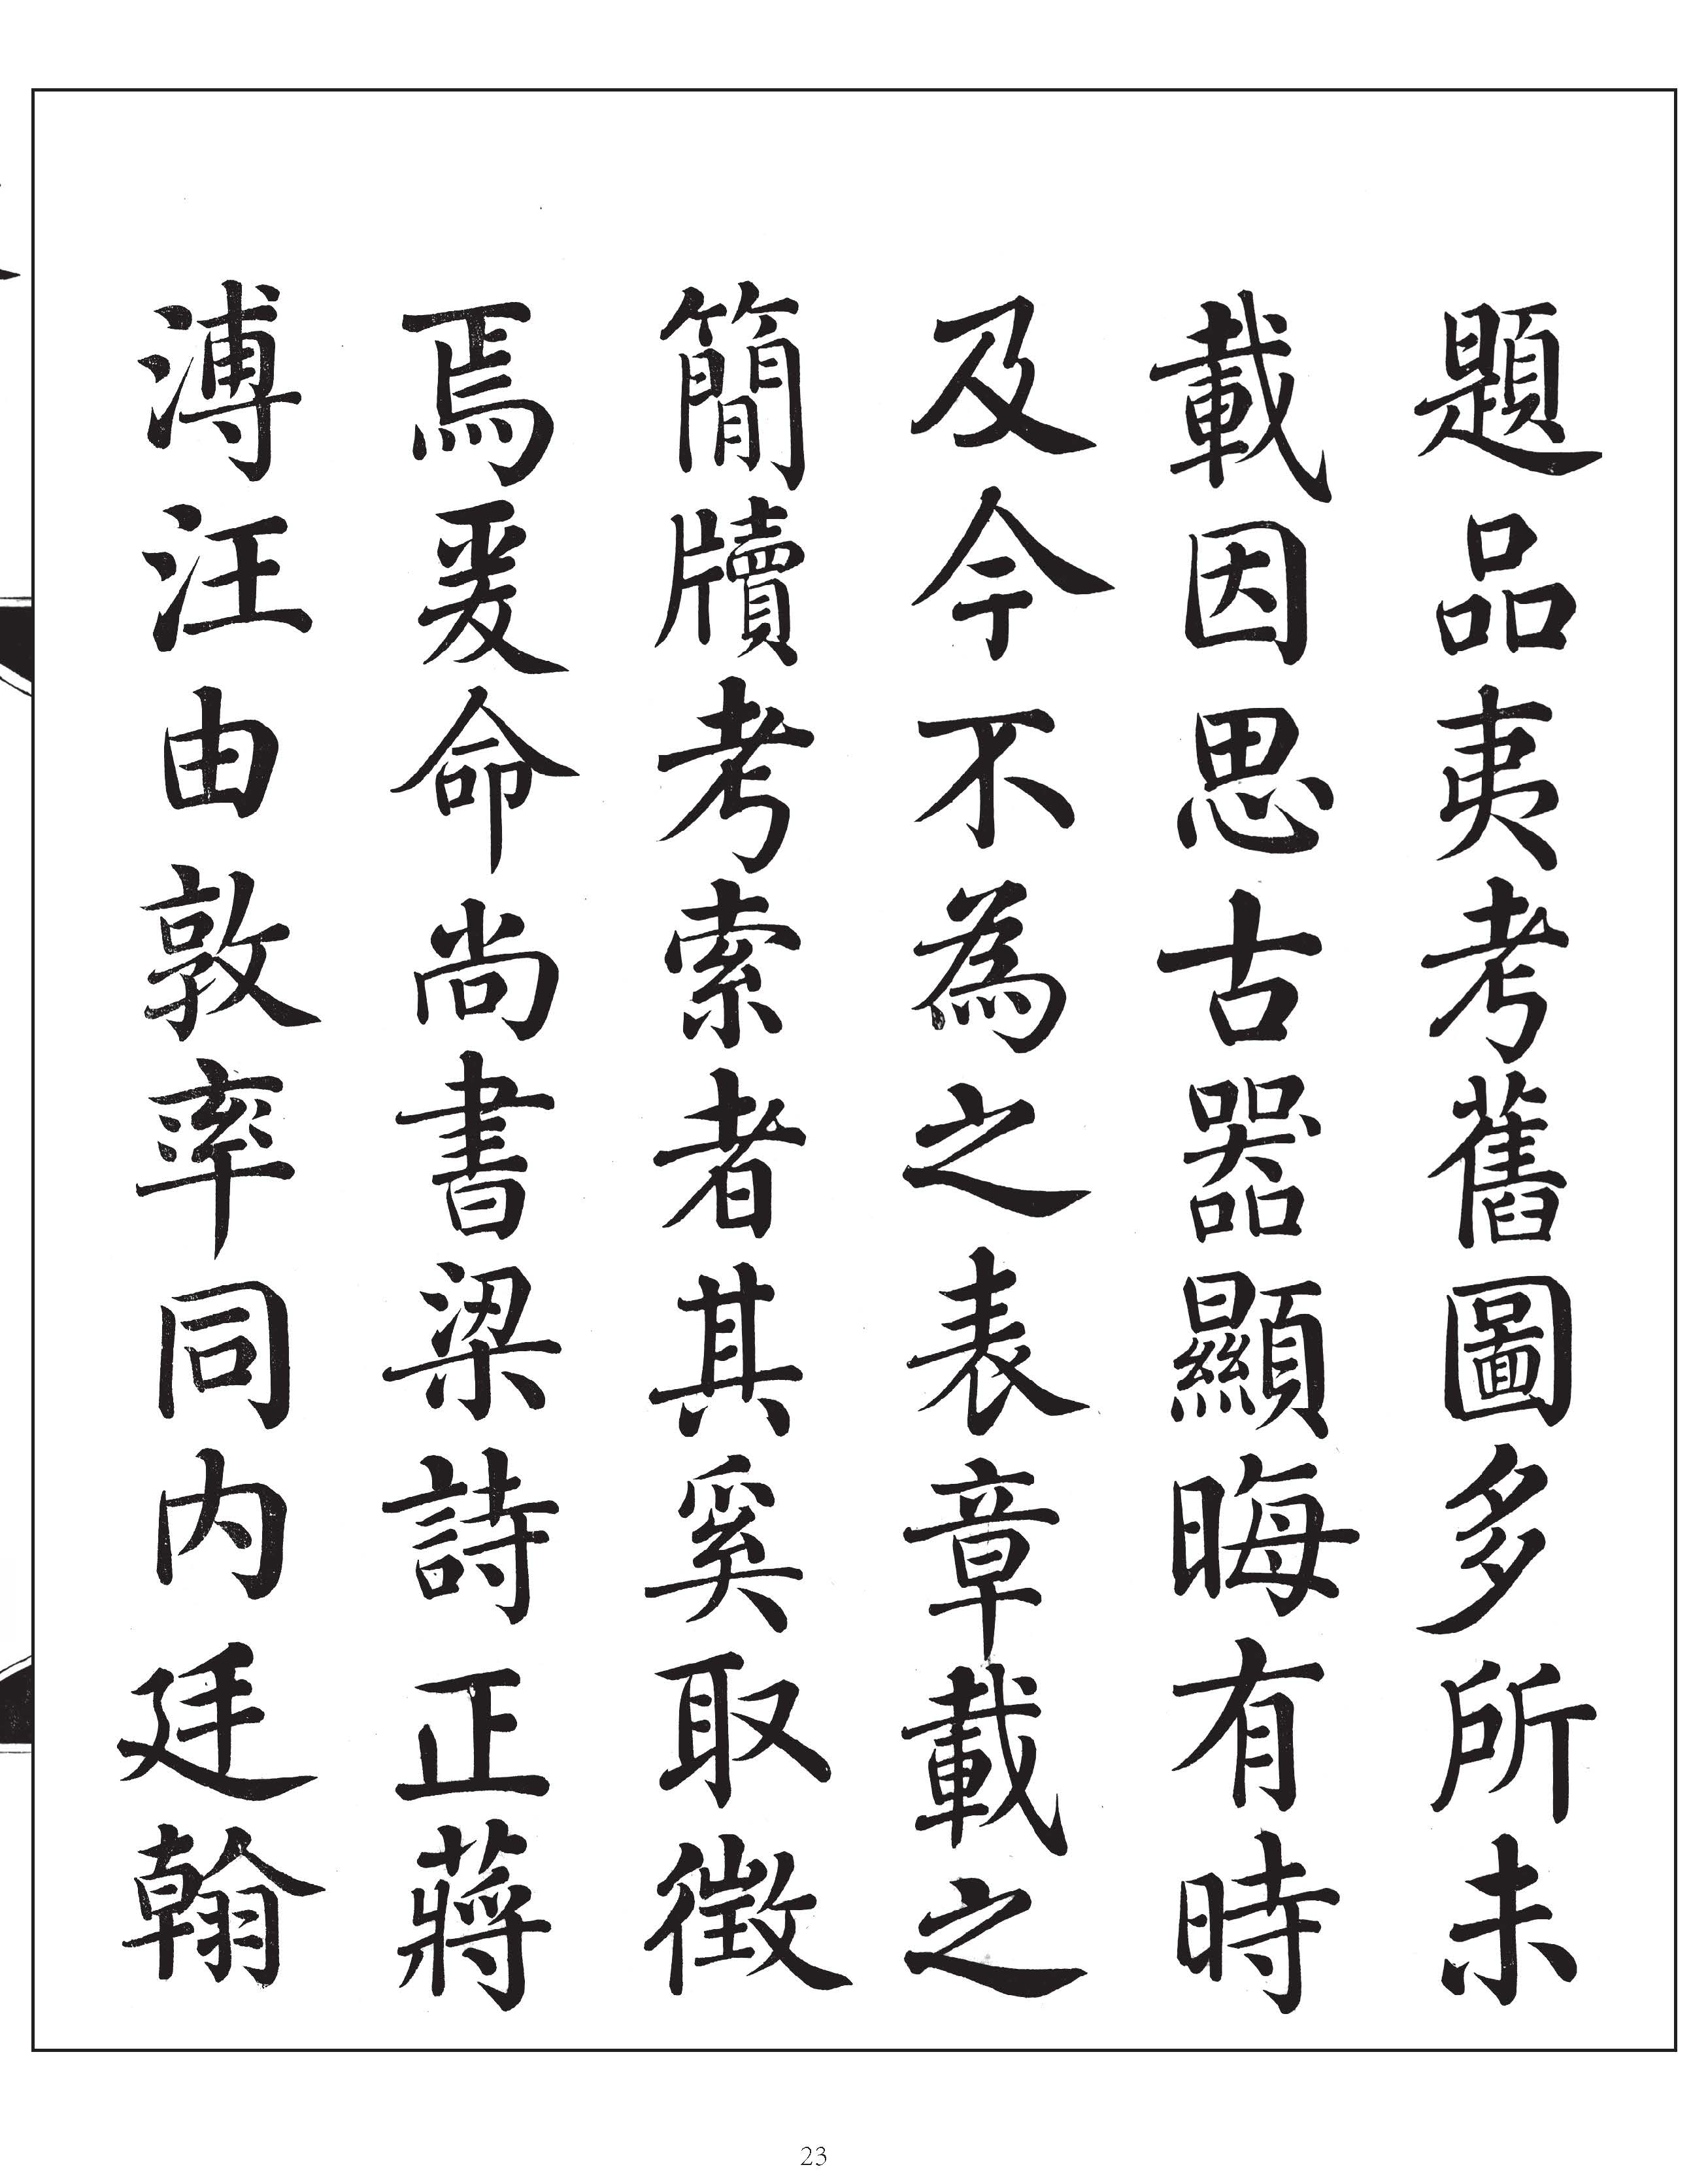 題品夷考舊圖多所未
載因思古器顯晦有時
及今不為之表章載之
簡牘考索者其奚取徵
焉爰命尚書梁詩正蔣
溥汪由敦率同内廷翰
23